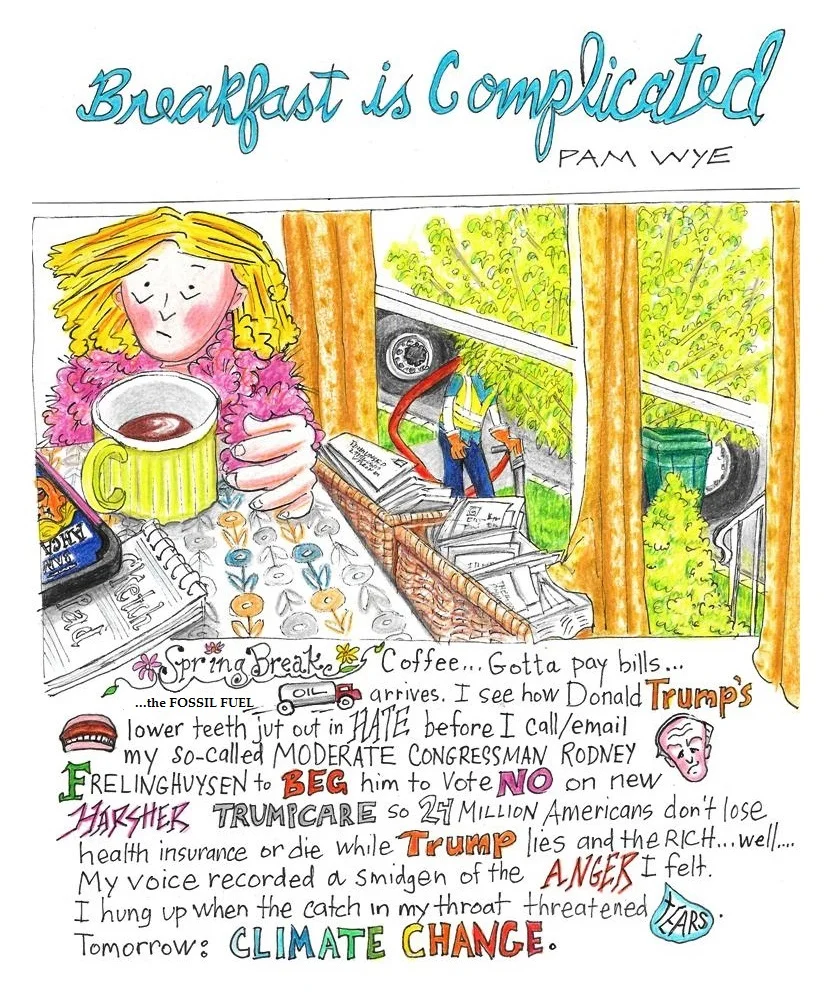 Breakfast is Complicated
PAM WYE
Sketch
Pad
Spring Break Coffee... Gotta pay bills...
...the FOSSIL FUEL OIL arrives. I see how Donald Trump's
lower teeth jut out in HATE before I call/email
my so-called MODERATE CONGRESSMAN RODNEY
FRELINGHUYSEN to BEG him to Vote NO on new
HARSHER TRUMPCARE so 24 MILLION Americans don't lose
health insurance or die while Trump lies and the RICH...well....
My voice recorded a smidgen of the ANGER I felt.
I hung up when the catch in my throat threatened TEARS.
Tomorrow: CLIMATE CHANGE.